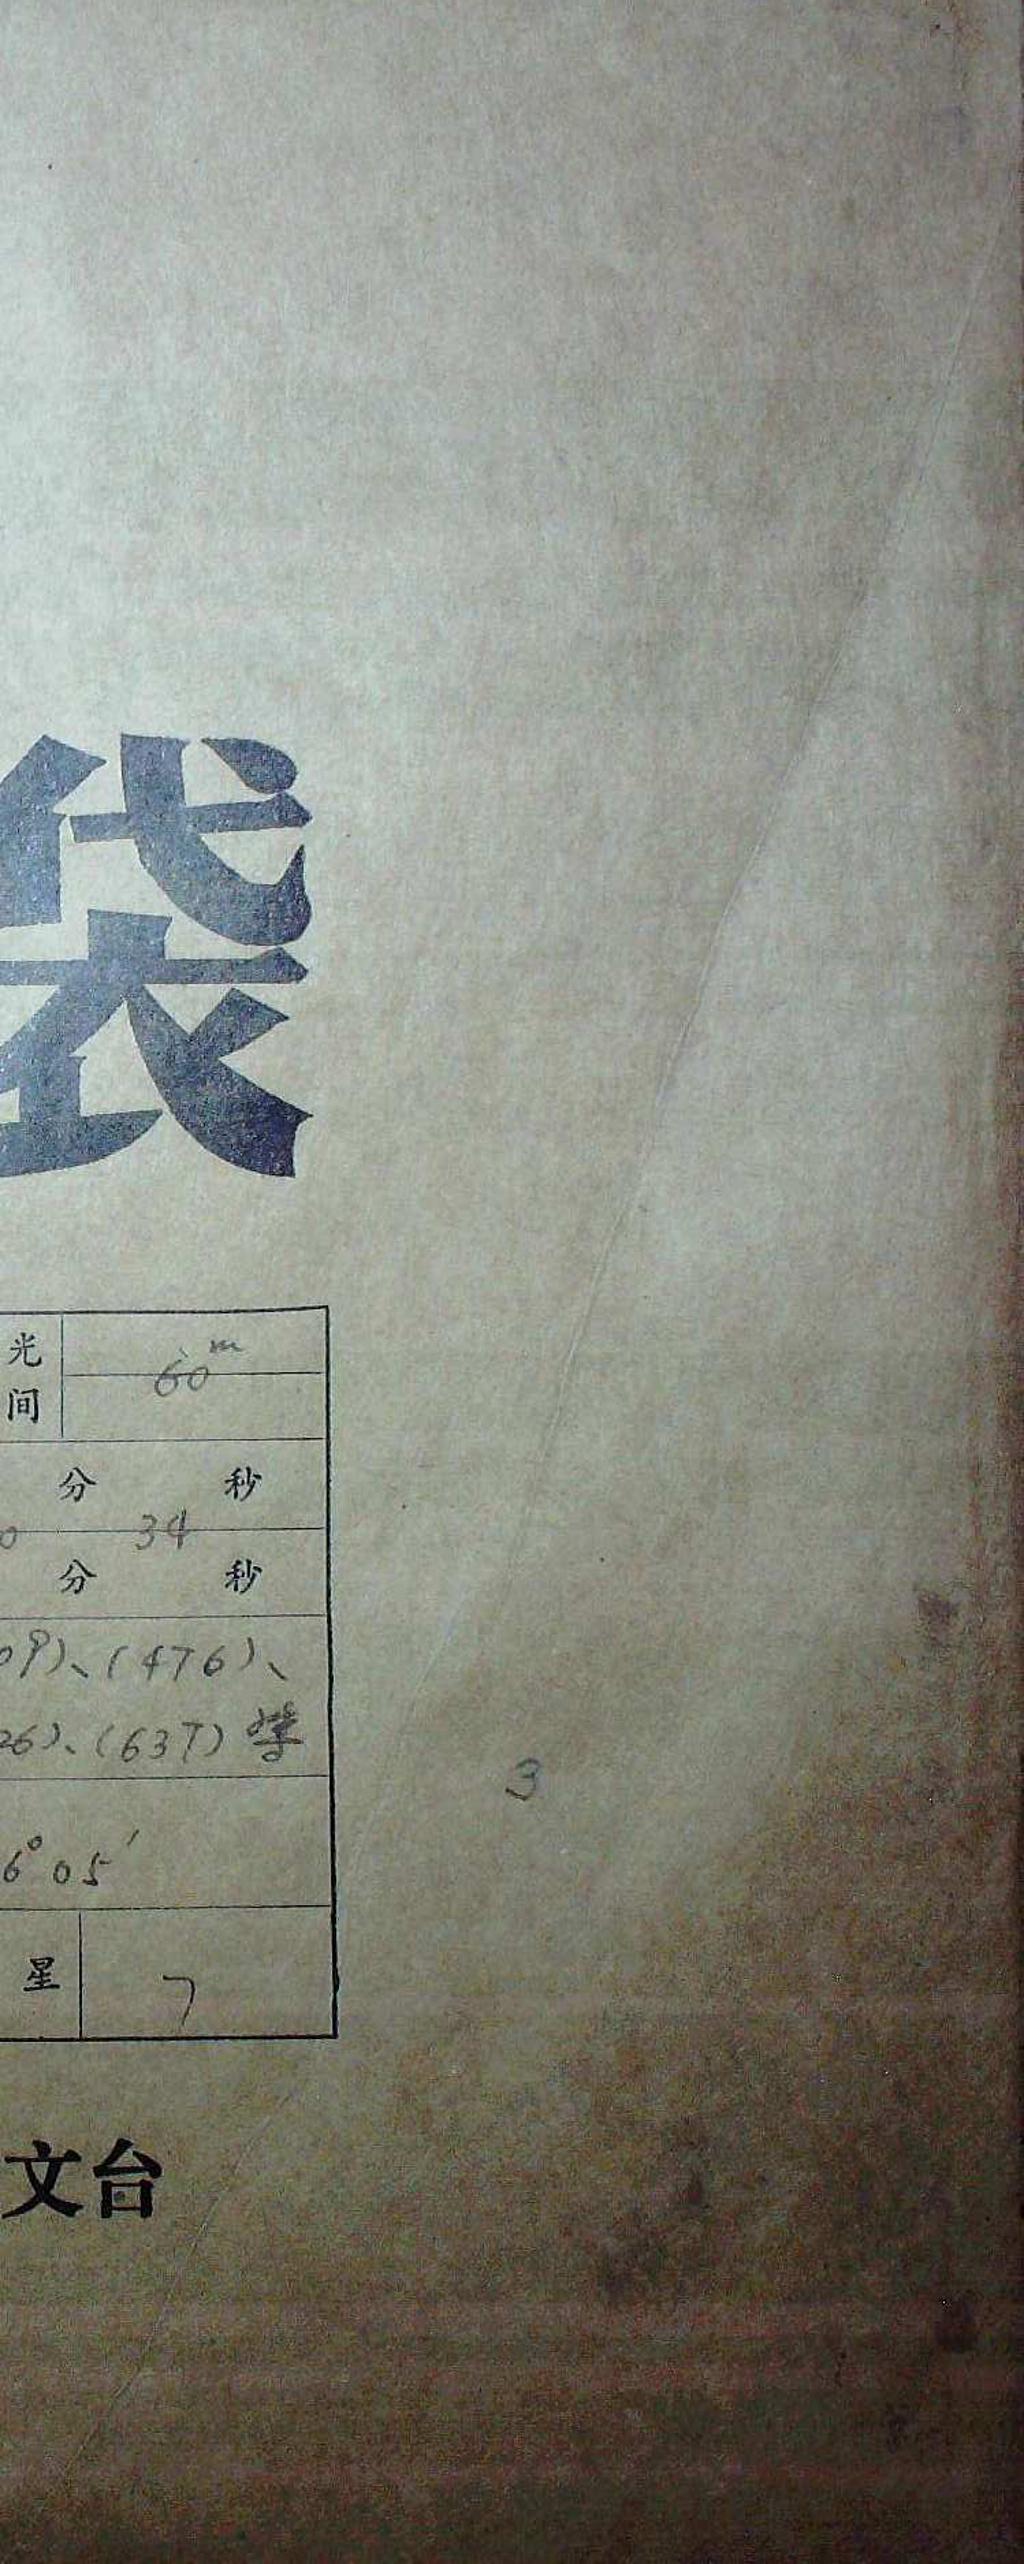 袋
光 60ᵐ
间
分 秒
0 34
分 秒
09)、(476)、
26)、(637) 等
3
6°05′
星 7
文台